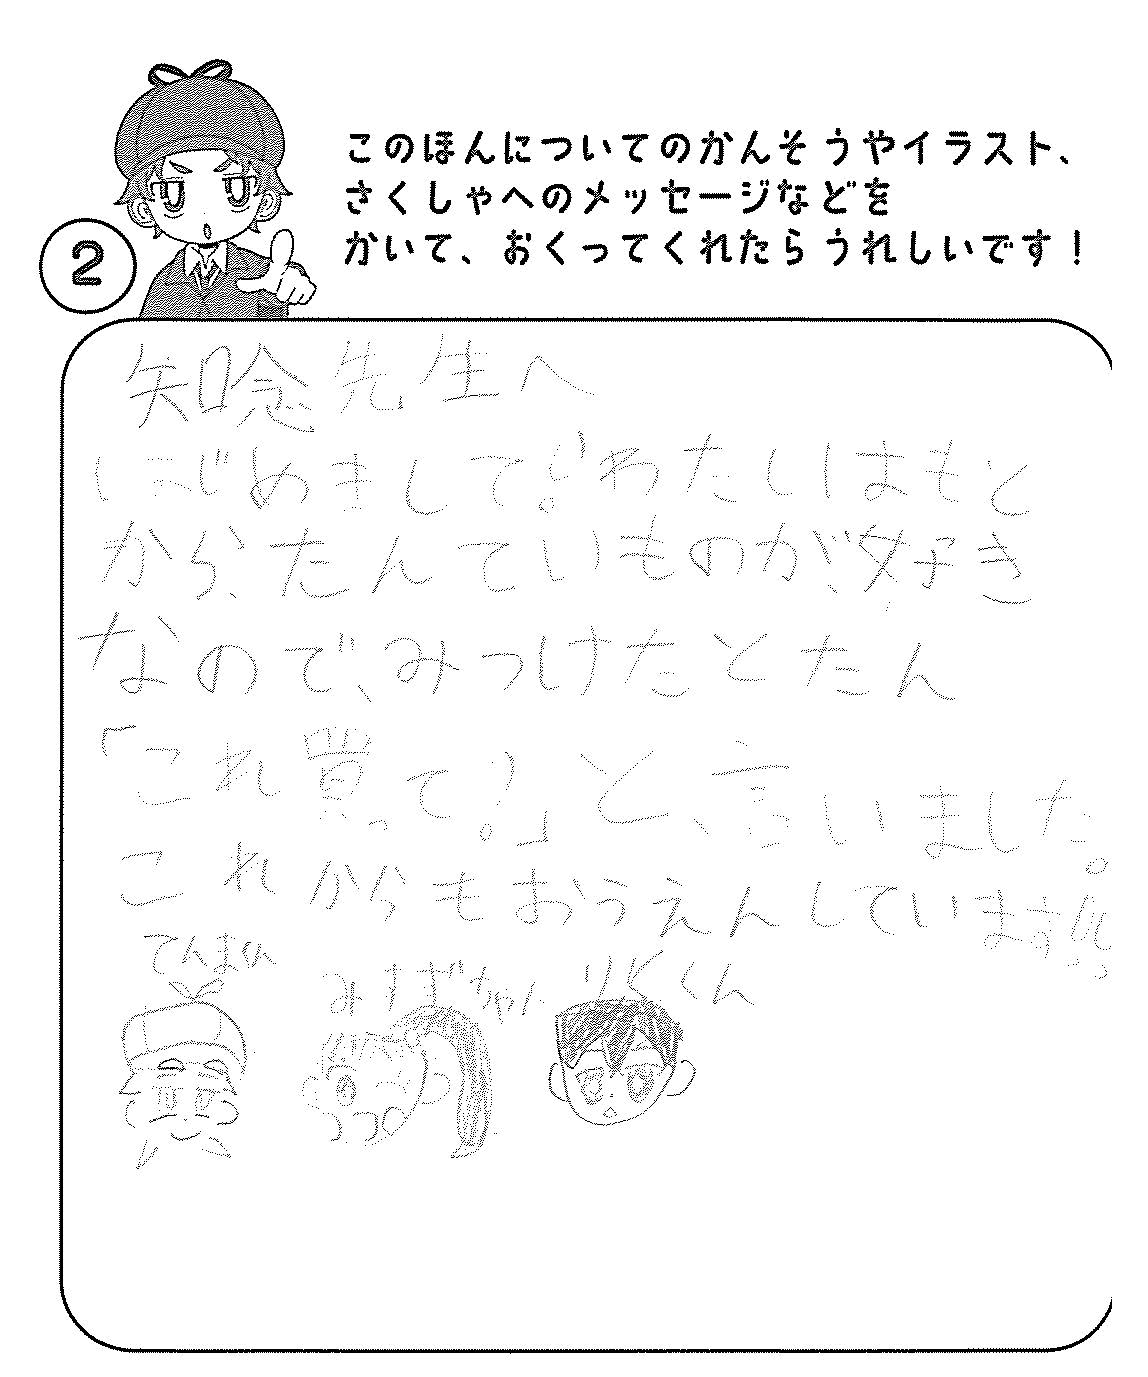 このほんについてのかんそうやイラスト、
さくしゃへのメッセージなどを
かいて、おくってくれたらうれしいです！
2
知念先生へ
はじめまして!わたしはもと
から、たんていものが、好き
なので、みつけたとたん
「これ買って!」と、言いました。
これからもおうえんしています!!
てんまくん
みずきちゃん
りくくん